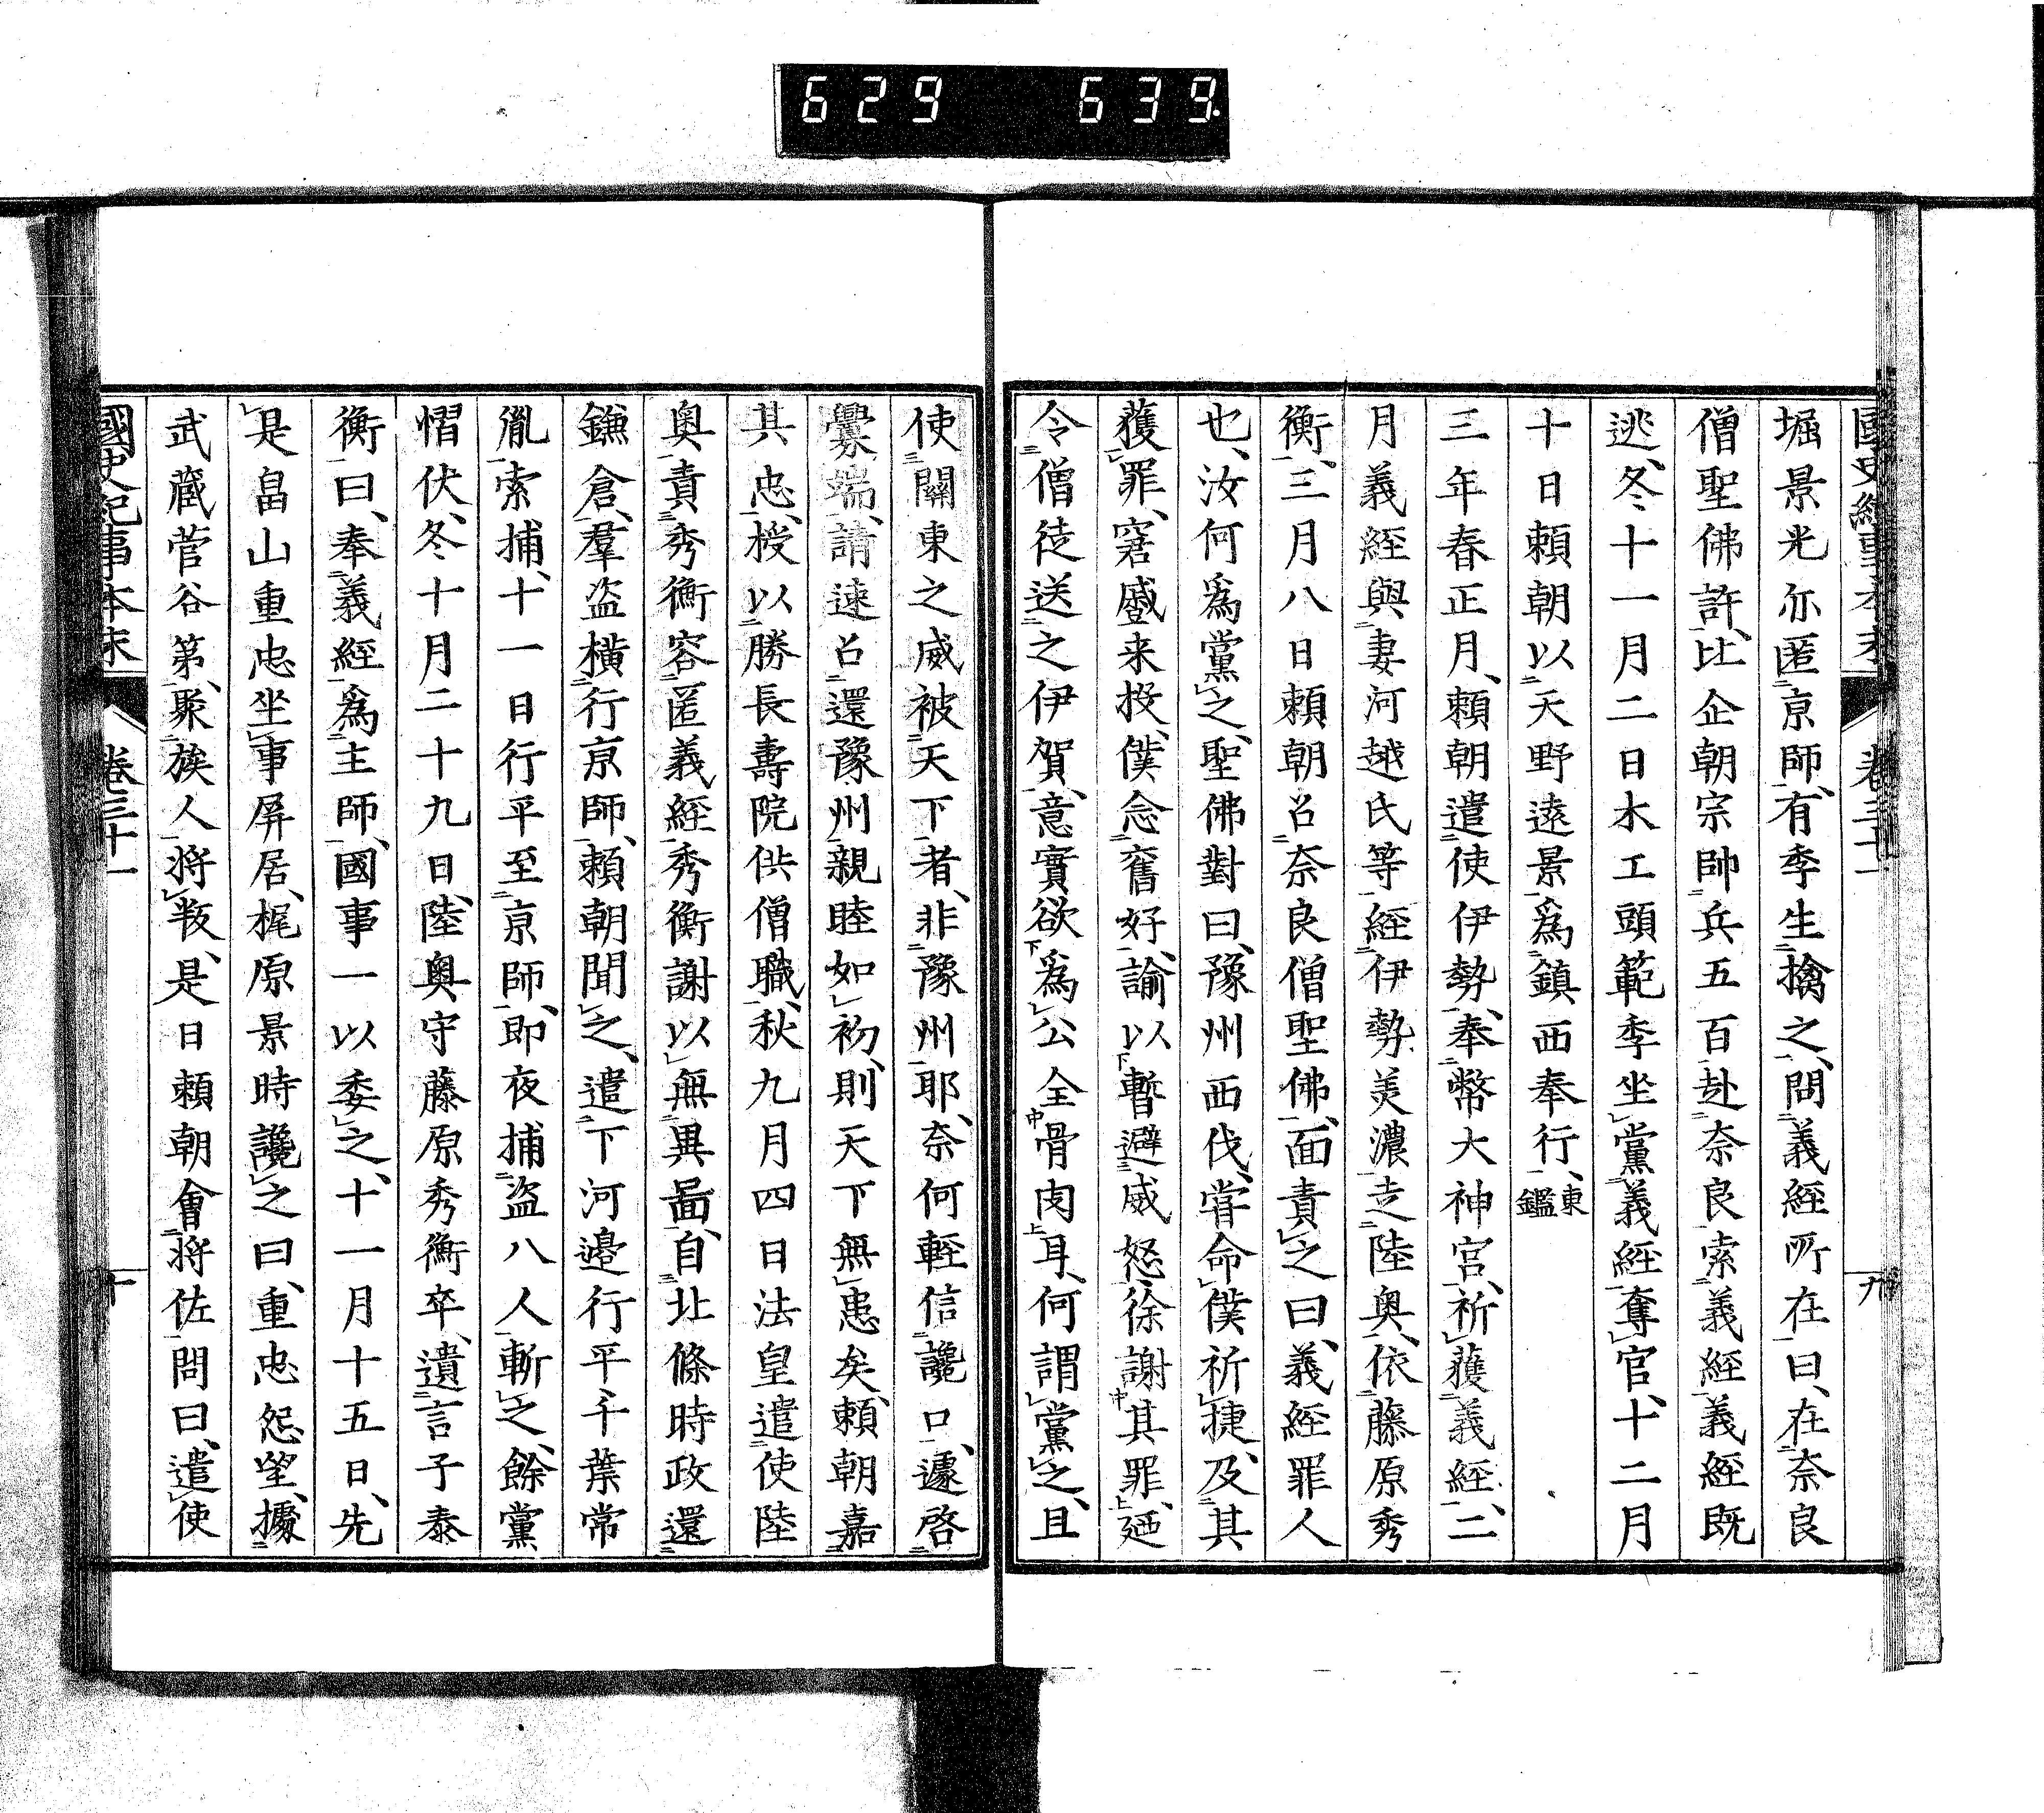 629 639
國史紀事本末 卷三十一 九
堀景光亦匿京師、有季生擒之、問義經所在曰、在奈良
僧聖佛許、比企朝宗帥兵五百赴奈良索義經義經既
逃、冬十一月二日木工頭範季坐黨義經奪官、十二月
十日頼朝以天野遠景爲鎮西奉行、東鑑
三年春正月、頼朝遣使伊勢、奉幣大神宮、祈獲義經、二
月義經與妻河越氏等經伊勢美濃走陸奥、依藤原秀
衡、三月八日頼朝召奈良僧聖佛、面責之曰、義經罪人
也、汝何爲黨之、聖佛對曰、豫州西伐、嘗命僕祈捷、及其
獲罪、窘蹙来投、僕念舊好、諭以暫避威怒、徐謝其罪、廼
令僧徒送之伊賀、意實欲爲公全骨肉耳、何謂黨之、且
使關東之威被天下者、非豫州耶、奈何輕信讒口、遽啓
釁端、請速召還豫州親睦如初、則天下無患矣、頼朝嘉
其忠、授以勝長壽院供僧職、秋九月四日法皇遣使陸
奥、責秀衡容匿義經秀衡謝以無異啚、自北條時政還
鎌倉、羣盗橫行京師、頼朝聞之、遣下河邉行平千葉常
胤索捕、十一日行平至京師、即夜捕盗八人斬之、餘黨
慴伏、冬十月二十九日、陸奥守藤原秀衡卒、遺言子泰
衡曰、奉義經爲主師、國事一以委之、十一月十五日、先
是畠山重忠坐事屏居、梶原景時讒之曰、重忠怨望、據
武藏菅谷第、聚族人將叛、是日頼朝會將佐問曰、遣使
國史紀事本末 卷三十一 十